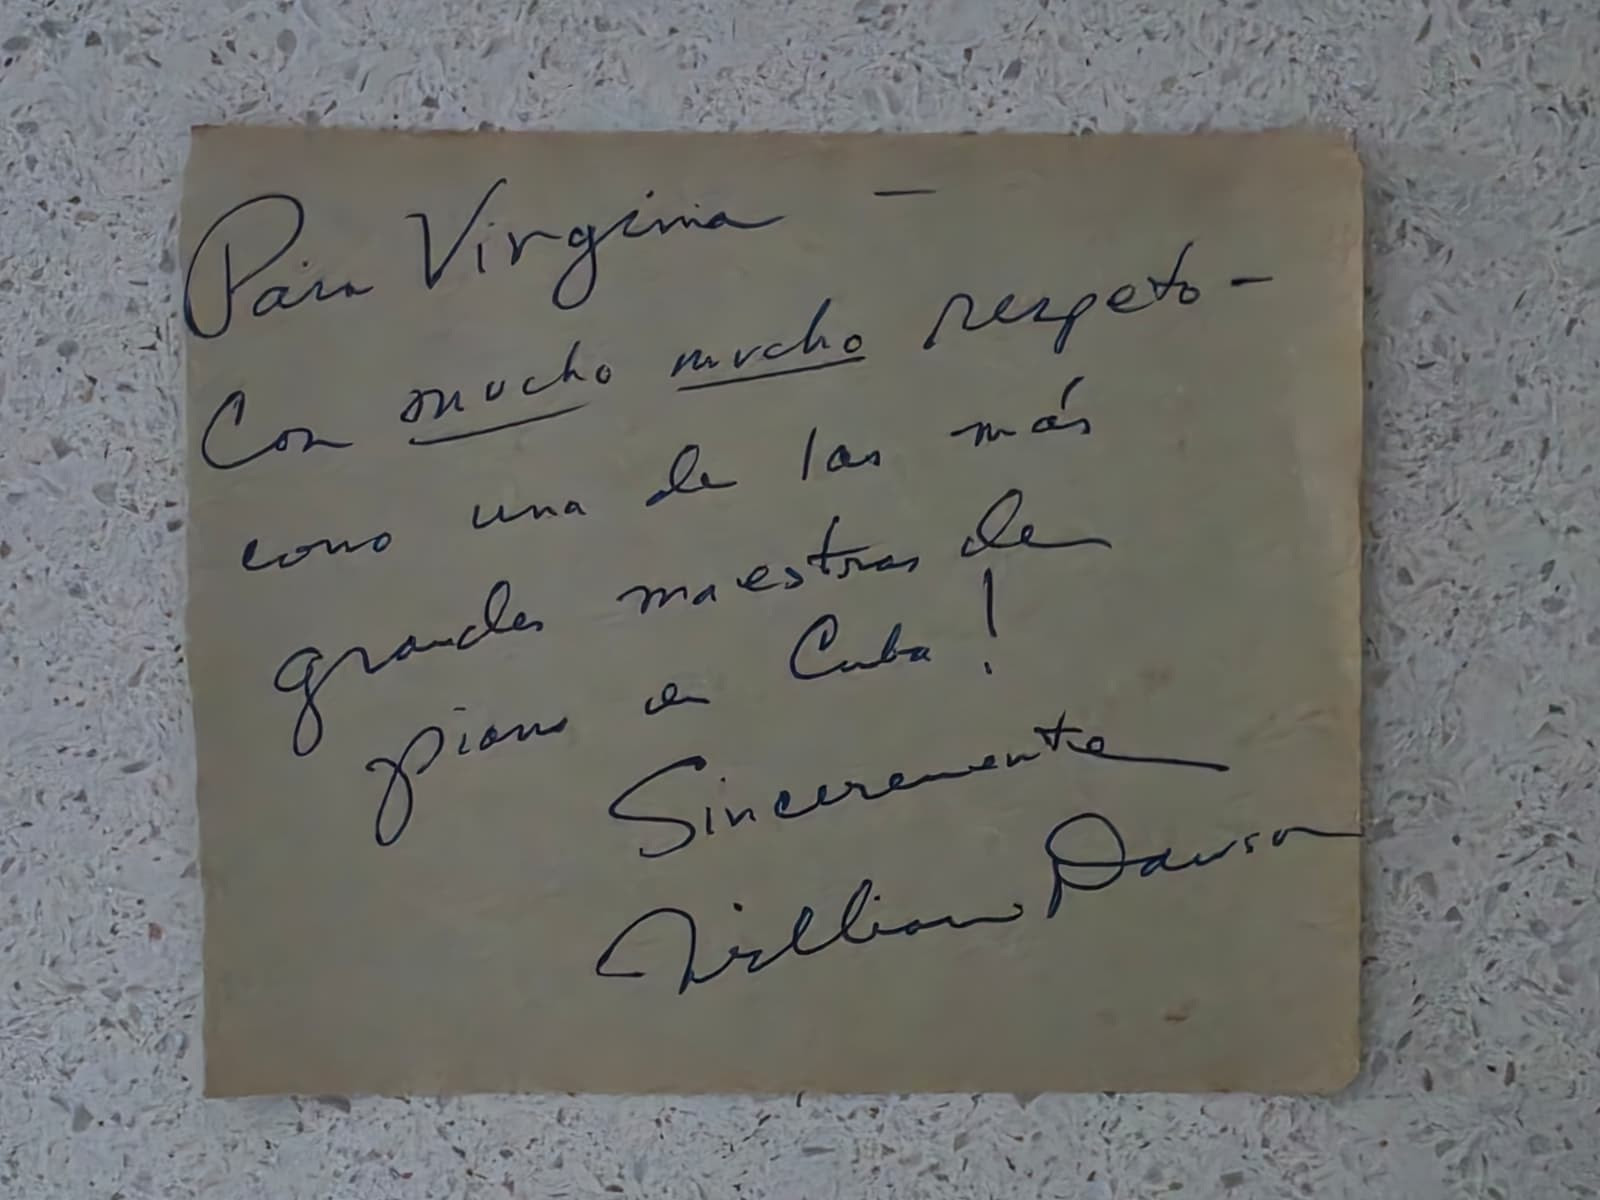 Para Virginia —
Con mucho mucho respeto -
como una de las más
grandes maestras de
piano en Cuba!
Sinceremente
William Dawson